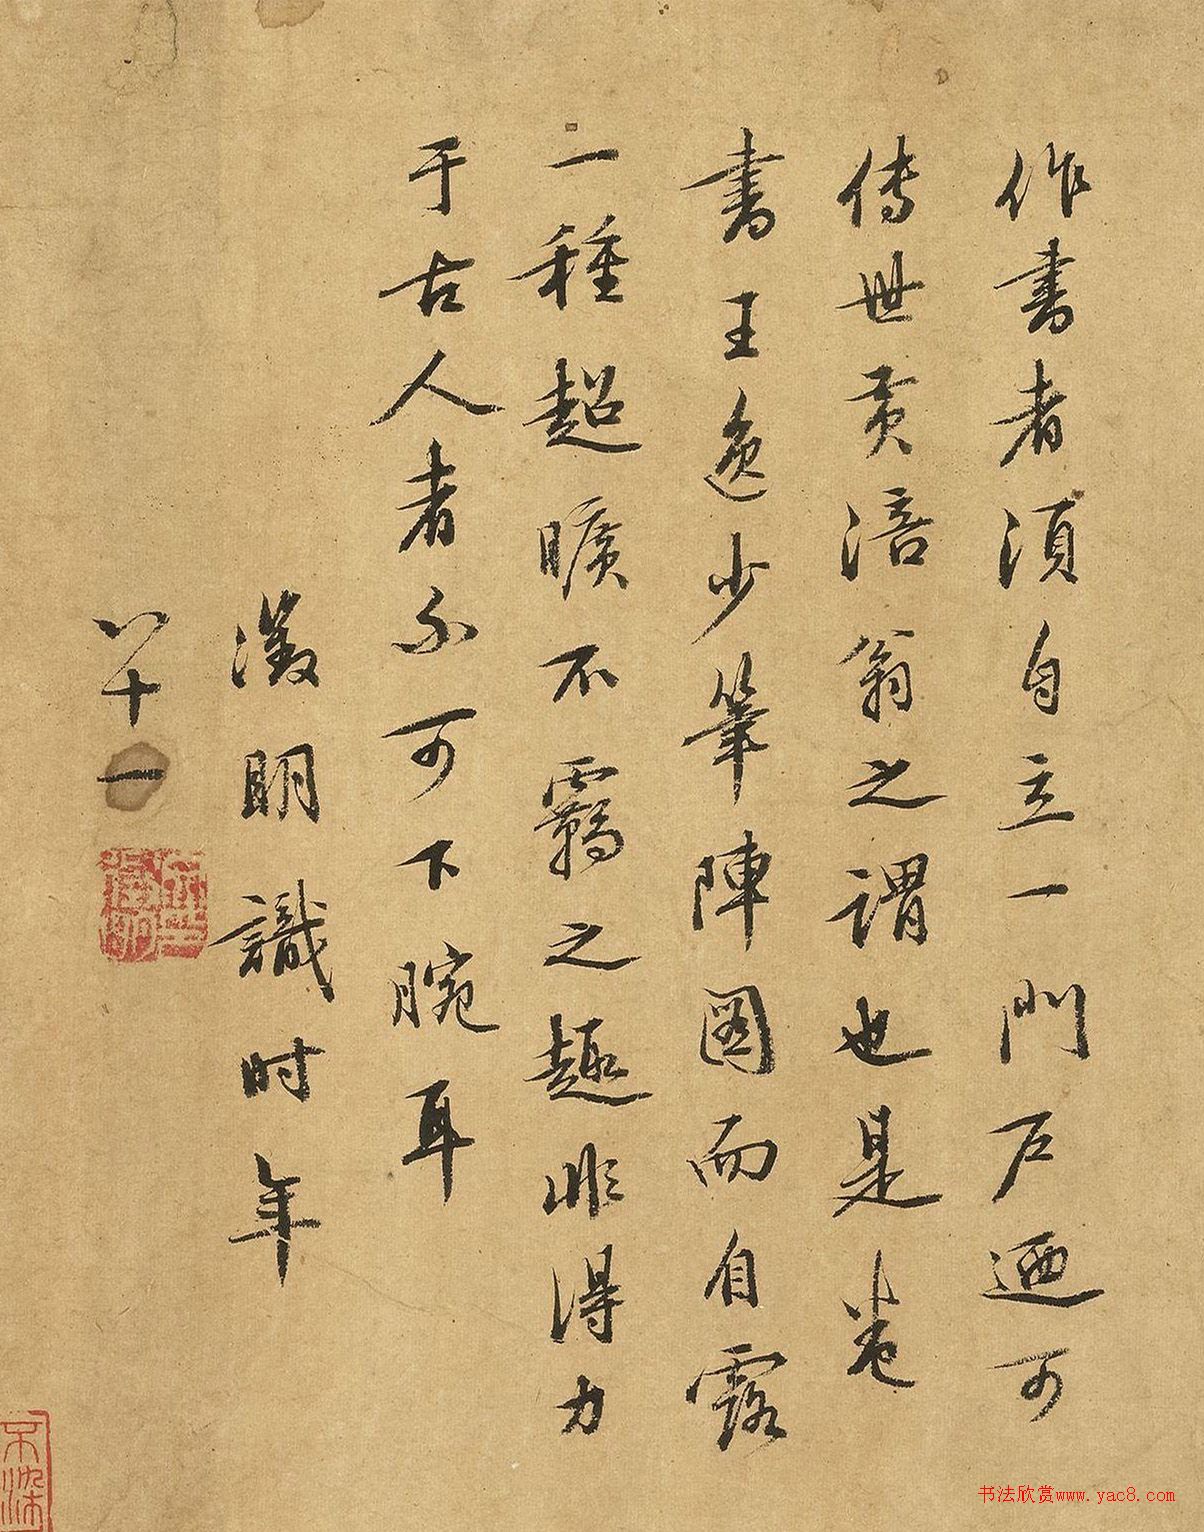 作書者須自立一門戶迺可
傳世黃涪翁之謂也是卷
書王逸少筆陣圖而自露
一種超曠不羈之趣非得力
于古人者不可下腕耳
徵明識时年
八十一
书法欣赏www.yac8.com